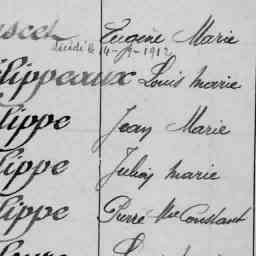 Eugène Marie
décédé le 4-9-1912
lippeaux Louis marie
lippe Jean Marie
lippe Julien marie
lippe Pierre Mie Constant